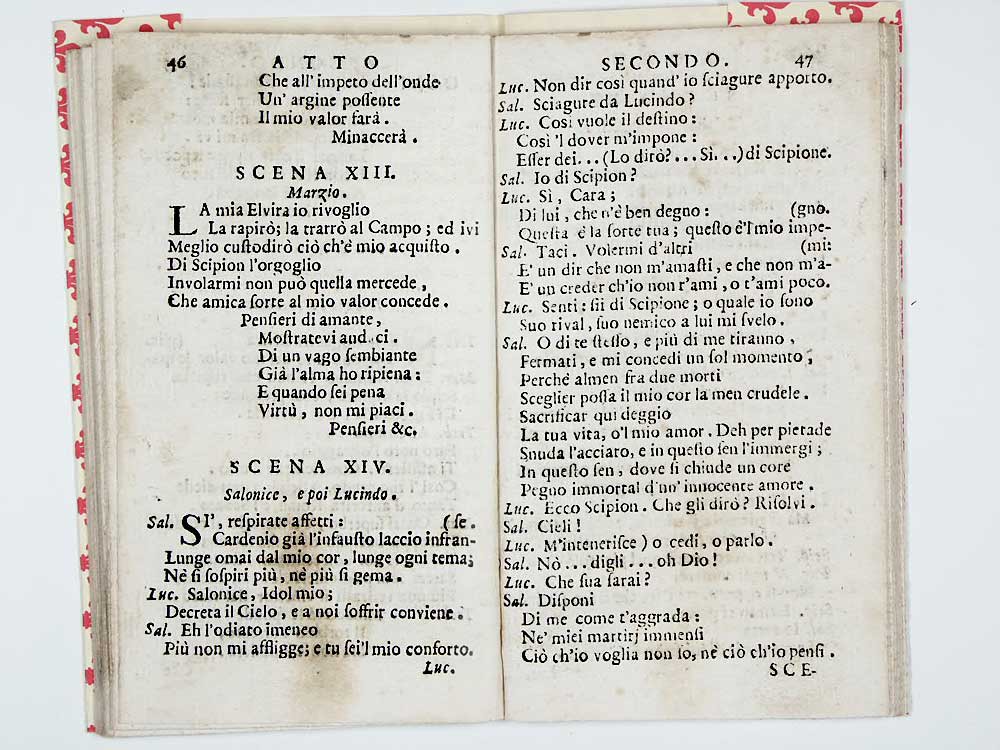 46 ATTO
Che all' impeto dell'onde
Un' argine poſſente
Il mio valor farà.
Minaccerà.
SCENA XIII.
Marzio.
LA mia Elvira io rivoglio
La rapirò; la trarrò al Campo; ed ivi
Meglio cuſtodirò ciò ch'è mio acquiſto.
Di Scipion l'orgoglio
Involarmi non può quella mercede,
Che amica ſorte al mio valor concede.
Penſieri di amante,
Moſtratevi aud ci.
Di un vago ſembiante
Già l'alma ho ripiena:
E quando ſei pena
Virtù, non mi piaci.
Penſieri &c.
SCENA XIV.
Salonice, e poi Lucindo.
Sal. SI', reſpirate affetti: (ſe.
Cardenio già l'infauſto laccio infran-
Lunge omai dal mio cor, lunge ogni tema;
Nè ſi ſoſpiri più, nè più ſi gema.
Luc. Salonice, Idol mio;
Decreta il Cielo, e a noi ſoffrir conviene.
Sal. Eh l'odiato imeneo
Più non mi affligge; e tu ſei'l mio conforto.
Luc.
SECONDO. 47
Luc. Non dir così quand' io ſciagure apporto.
Sal. Sciagure da Lucindo?
Luc. Così vuole il deſtino:
Così 'l dover m'impone:
Eſſer dei... (Lo dirò?... Sì...) di Scipione.
Sal. Io di Scipion?
Luc. Sì, Cara;
Di lui, che n'è ben degno: (gno.
Queſta è la ſorte tua; queſto è'l mio impe-
Sal. Taci. Volermi d'altri (mi:
E' un dir che non m'amaſti, e che non m'a-
E' un creder ch'io non t'ami, o t'ami poco.
Luc. Senti: ſii di Scipione; o quale io ſono
Suo rival, ſuo nemico a lui mi ſvelo.
Sal. O di te ſteſſo, e più di me tiranno,
Fermati, e mi concedi un ſol momento;
Perchè almen fra due morti
Sceglier poſſa il mio cor la men crudele.
Sacrificar qui deggio
La tua vita, o'l mio amor. Deh per pietade
Snuda l'acciaro, e in queſto ſen l'immergi;
In queſto ſen, dove ſi chiude un core
Pegno immortal d'un' innocente amore.
Luc. Ecco Scipion. Che gli dirò? Riſolvi.
Sal. Cieli!
Luc. M'inteneriſce) o cedi, o parlo.
Sal. Nò... digli... oh Dio!
Luc. Che ſua ſarai?
Sal. Diſponi
Di me come t'aggrada:
Ne' miei martirj immenſi
Ciò ch'io voglia non ſo, nè ciò ch'io penſi.
SCE-